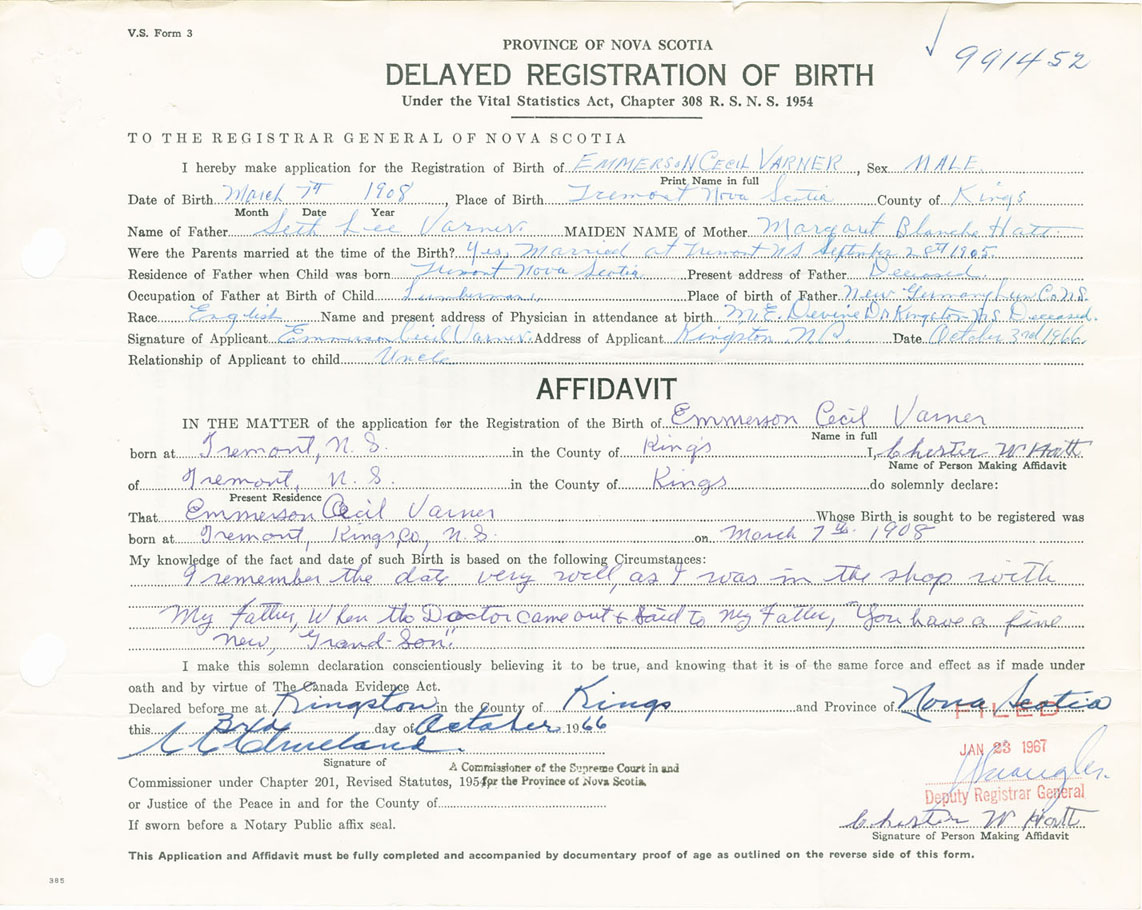 V.S. Form 3
991452
PROVINCE OF NOVA SCOTIA
DELAYED REGISTRATION OF BIRTH
Under the Vital Statistics Act, Chapter 308 R. S. N. S. 1954
TO THE REGISTRAR GENERAL OF NOVA SCOTIA
I hereby make application for the Registration of Birth of EMMERSON CECIL VARNER, Sex MALE
Print Name in full
Date of Birth March 7th 1908, Place of Birth Tremont Nova Scotia County of Kings
Month Date Year
Name of Father Seth Lee Varner. MAIDEN NAME of Mother Margaret Blanche Hatt
Were the Parents married at the time of the Birth? Yes, Married at Tremont NS September 28th 1905.
Residence of Father when Child was born Tremont Nova Scotia Present address of Father Deceased.
Occupation of Father at Birth of Child Lumberman, Place of birth of Father New Germany Lun. Co. N.S.
Race English Name and present address of Physician in attendance at birth M.E. Devine Dr Kingston N.S. Deceased.
Signature of Applicant Emmerson Cecil Varner. Address of Applicant Kingston N.S. Date October 3rd 1966.
Relationship of Applicant to child Uncle
AFFIDAVIT
IN THE MATTER of the application for the Registration of the Birth of Emmerson Cecil Varner
Name in full
born at Tremont, N. S. in the County of King's I, Chester W Hatt
Name of Person Making Affidavit
of Tremont, N. S. in the County of Kings do solemnly declare:
Present Residence
That Emmerson Cecil Varner Whose Birth is sought to be registered was
born at Tremont, Kings, Co., N. S. on March 7th 1908
My knowledge of the fact and date of such Birth is based on the following Circumstances:
I remember the date very well, as I was in the shop with
My Father, When the Doctor came out & Said to My Father, "You have a fine
New, Grand-Son."
I make this solemn declaration conscientiously believing it to be true, and knowing that it is of the same force and effect as if made under
oath and by virtue of The Canada Evidence Act.
Declared before me at Kingston in the County of Kings and Province of Nova Scotia
FILED
this 3rd day of October 1966
JAN 23 1967
Signature of
A Commissioner of the Supreme Court in and
Commissioner under Chapter 201, Revised Statutes, 1954 for the Province of Nova Scotia
Deputy Registrar General
or Justice of the Peace in and for the County of
Chester W Hatt
If sworn before a Notary Public affix seal.
Signature of Person Making Affidavit
This Application and Affidavit must be fully completed and accompanied by documentary proof of age as outlined on the reverse side of this form.
385